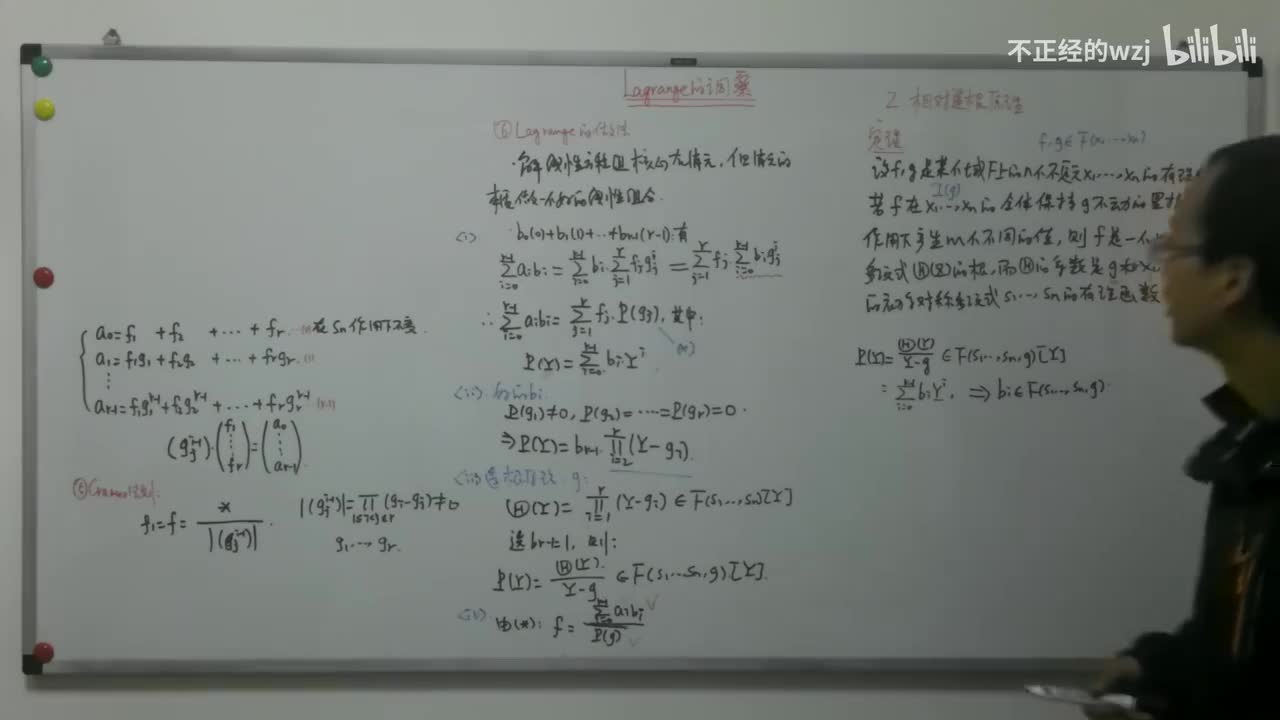 不正经的wzj bilibili
Lagrange的
a₀=f₁ +f₂ +⋯+ fᵣ 在Sn作用下不变.
a₁=f₁g₁+f₂g₂ +⋯+ fᵣgᵣ (1)
⋮
aᵣ₋₁=f₁g₁ʳ⁻¹+f₂g₂ʳ⁻¹+⋯+fᵣgᵣʳ⁻¹ (r-1)
(gⱼⁱ⁻¹)·(f₁ ⋮ fᵣ)=(a₀ ⋮ aᵣ₋₁)
Cramer法则:
f₁=f= * / |(gⱼⁱ⁻¹)| . |(gⱼⁱ⁻¹)|=∏ 1≤i<j≤r (gᵢ-gⱼ)≠0
g₁⋯gᵣ.
Lagrange的
·解线性方程组 消元,但消元的
线性组合.
(i) b₀(0)+b₁(1)+⋯+bᵣ₋₁(r-1):有
∑ᵢ₌₀ʳ⁻¹ aᵢbᵢ=∑ᵢ₌₀ʳ⁻¹ bᵢ·∑ⱼ₌₁ʳ fⱼgⱼⁱ=∑ⱼ₌₁ʳ fⱼ·∑ᵢ₌₀ʳ⁻¹ bᵢgⱼⁱ
∴ ∑ᵢ₌₀ʳ⁻¹ aᵢbᵢ=∑ⱼ₌₁ʳ fⱼ·Ψ(gⱼ), 其中: (*)
Ψ(Y)=∑ᵢ₌₀ʳ⁻¹ bᵢYⁱ
(ii) bᵢ.
Ψ(g₁)≠0, Ψ(g₂)=⋯=Ψ(gᵣ)=0.
⇒Ψ(Y)=bᵣ₋₁·∏ᵢ₌₂ʳ(Y-gᵢ).
(iii) g:
Θ(Y)=∏ᵢ₌₁ʳ(Y-gᵢ)∈F(s₁,…,sn)[Y]
选bᵣ₋₁=1, 则:
Ψ(Y)=Θ(Y)/(Y-g) ∈F(s₁…sn,g)[Y].
(iv) 由(*): f=∑ᵢ₌₀ʳ⁻¹ aᵢbᵢ / Ψ(g)
2. 相对
定理 f,g∈F(x₁,…,xn)
设f,g是某个域F上的n个不定元x₁,…,xn的有理
若f在x₁,…,xn的全体保持g不动的置换
I(g)
作用下产生m个不同的值,则f是一个
多项式Θ(Z)的根,而Θ的系数是g和x₁
的初等对称多项式s₁…sn的有理函数
Ψ(Y)=Θ(Y)/(Y-g) ∈F(s₁,…,sn,g)[Y]
=∑ᵢ₌₀ʳ⁻¹ bᵢYⁱ, ⇒bᵢ∈F(s₁,…,sn,g).